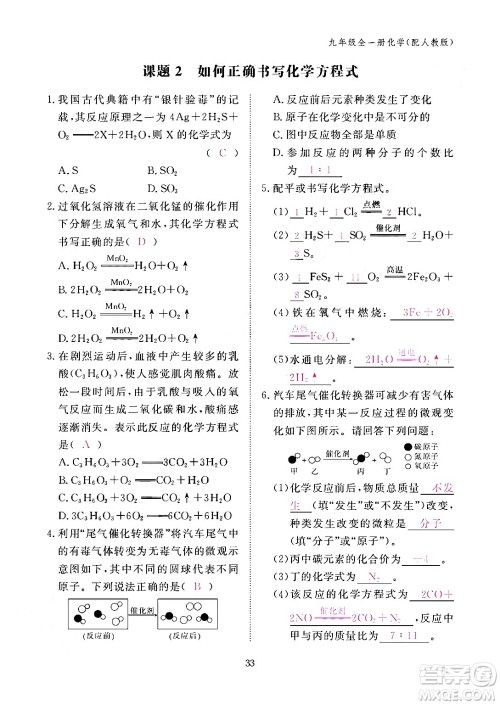 九年级全一册化学(配人教版)
课题 2 如何正确书写化学方程式
1. 我国古代典籍中有“银针验毒”的记
载,其反应原理之一为 4Ag+2H₂S+
O₂ ══ 2X+2H₂O,则 X 的化学式为
( C )
A. S B. SO₂
C. Ag₂S D. Ag₂SO₄
2. 过氧化氢溶液在二氧化锰的催化作用
下分解生成氧气和水,其化学方程式
书写正确的是( D )
A. H₂O₂ ══MnO₂══ H₂+O₂↑
3. 在剧烈运动后,血液中产生较多的乳
酸(C₃H₆O₃),使人感觉肌肉酸痛。放
松一段时间后,乳酸与吸入人体的氧
气反应生成二氧化碳和水,酸痛感觉
消失。表示此反应的化学方程式为
( A )
A. C₃H₆O₃+3O₂ ══ 3CO₂+3H₂O
4. 利用“尾气催化转换器”将汽车尾气中
的有毒气体转变为无毒气体的微观示
意图如下,图中不同的圆球代表不同
原子。下列说法正确的是( B )
催化剂
(反应前) (反应后)
A. 反应前后元素种类发生了变化
B. 原子在化学变化中不可分
C. 图中反应物都是单质
D. 参加反应的两种分子的个数比
为 1∶1
5. 配平或书写化学方程式。
(1) 1 H₂+ 1 Cl₂ ══点燃══ 2 HCl
(2) 2 H₂S+ 1 SO₂ ══催化剂══ 2 H₂O+
3 S。
(4)铁在氧气中燃烧: 3Fe+2O₂
══点燃══ Fe₃O₄ 。
(5)水通电分解: 2H₂O ══通电══ 2H₂↑
+O₂↑ 。
6. 汽车尾气催化转换器可减少有害气体
的排放,其中某一反应过程的微观变
化如图所示。请回答下列问题:
催化剂
甲 乙 丙 丁
碳原子
氮原子
氧原子
(1)化学反应前后原子的种类 不发
生 (填“发生”或“不发生”)改变,
该反应中发生改变的微粒是 分子
(填“分子”或“原子”)。
(2)丙中碳元素的化合价为 +4 。
(3)丁的化学式为 N₂ 。
(4)该反应的化学方程式为 2CO+
2NO ══催化剂══ 2CO₂+N₂ ,反应中
甲与丙的质量比为 7∶11 。
33
答案圈
MXQE.COM